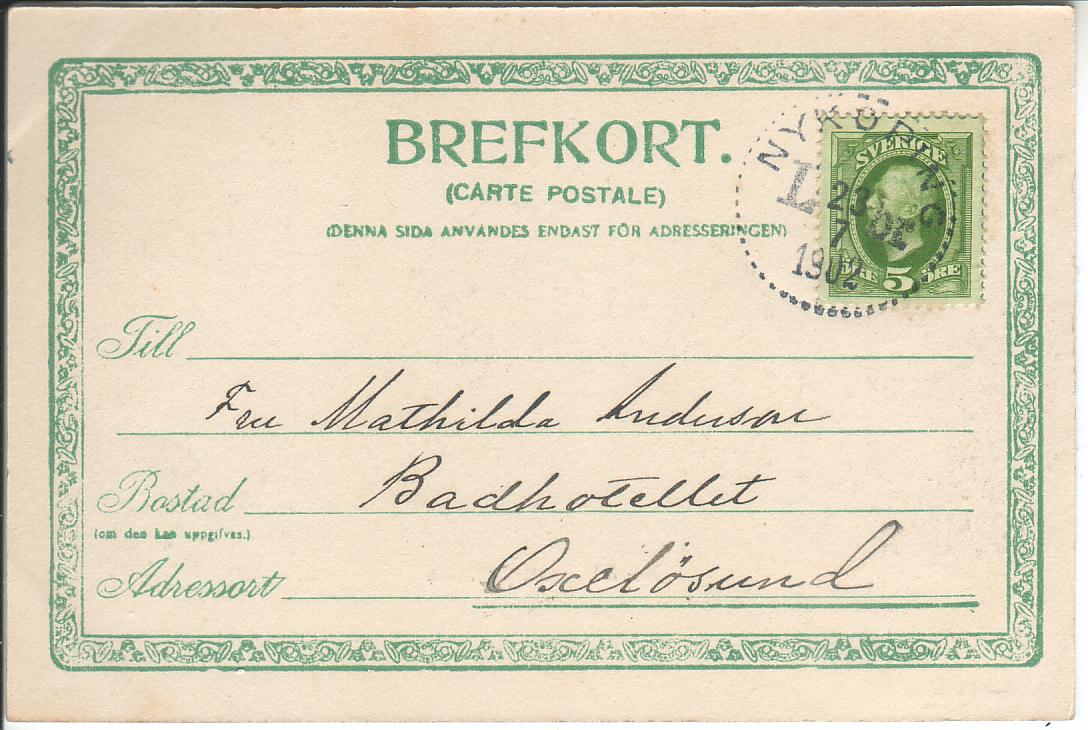 BREFKORT.
(CARTE POSTALE)
(DENNA SIDA ANVÄNDES ENDAST FÖR ADRESSERINGEN)
NYKÖPING
L
23
7
1902
SVERIGE
ÖRE 5 ÖRE
Till
Fru Mathilda Anderson
Bostad Badhotellet
(om den kan uppgifvas.)
Adressort Oxelösund